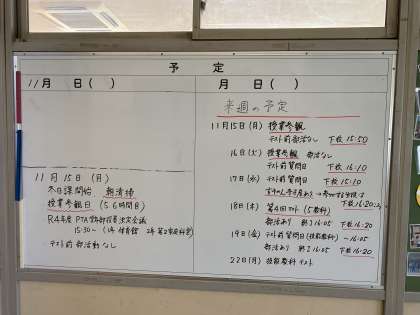 予 定
11月 日( )
11月 15日 (月)
木日課開始 朝清掃
授業参観日 (5 6時間目)
R4年度 PTA
15:30~
テスト前 部活動なし
月 日( )
来週の予定
11月15日(月) 授業参観
テスト前部活なし 下校 15:50
16日(火) 授業参観 部活なし
テスト前質問日 下校 16:10
17日(水) テスト前質問日 下校 15:10
18日(木) 第4回テスト (5教科) 下校 16:20
部活あり 終了 16:05 下校 16:20
19日(金) テスト前質問日(技能教科) ~16:05
部活あり 終了 16:05 下校 16:20
22日(月) 技能教科テスト